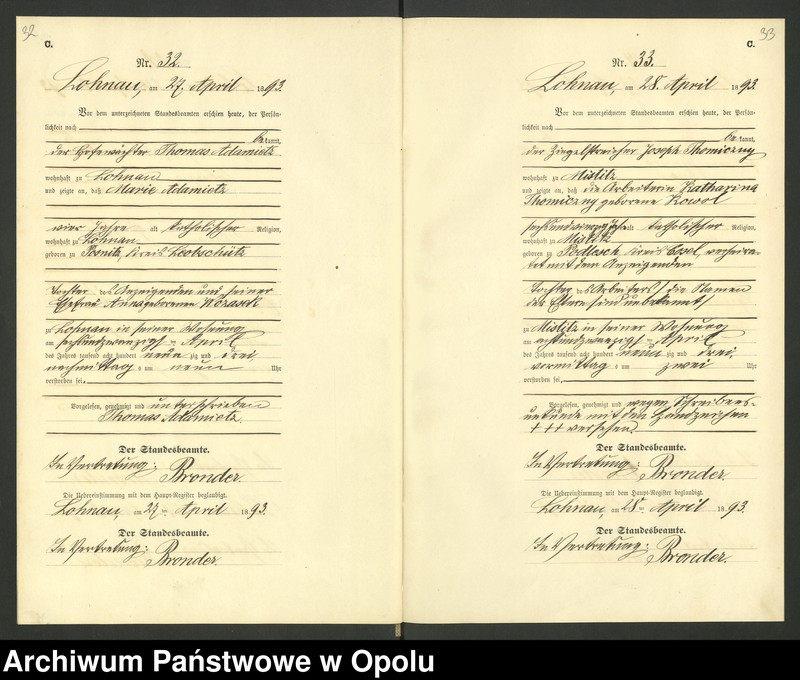 32
C.
Nr. 32.
Lohnau, am 27. April 1893.
Vor dem unterzeichneten Standesbeamten erschien heute, der Persön-
lichkeit nach
be kannt,
der Hofewächter Thomas Adamietz
wohnhaft zu Lohnau
und zeigte an, daß Marie Adamietz
vier Jahre alt katholischer Religion,
wohnhaft zu Lohnau
geboren zu Posnitz, Kreis Leobschütz
Tochter des Anzeigenden und seiner
Ehefrau Anna geborenen
zu Lohnau in seiner Wohnung
am sechsundzwanzigsten April
des Jahres tausend acht hundert neun zig und drei
nachmittag s um neun Uhr
verstorben sei.
Vorgelesen, genehmigt und unterschrieben
Thomas Adamietz.
Der Standesbeamte.
In Vertretung: Bronder.
Die Uebereinstimmung mit dem Haupt-Register beglaubigt.
Lohnau, am 27ten April 1893.
Der Standesbeamte.
In Vertretung: Bronder.
33
C.
Nr. 33.
Lohnau, am 28. April 1893.
Vor dem unterzeichneten Standesbeamten erschien heute, der Persön-
lichkeit nach
be kannt,
der Ziegelstreicher Joseph Thomiczny
wohnhaft zu Mistitz
und zeigte an, daß die Arbeiterin Katharina
Thomiczny geborene Kowol
alt katholischer Religion,
wohnhaft zu Mistitz
geboren zu Podlesch Kreis Cosel, verheira-
tet mit dem Anzeigenden
Tochter des Arbeiters / die Namen
der Eltern sind unbekannt /
zu Mistitz in seiner Wohnung
am achtundzwanzigsten April
des Jahres tausend acht hundert neun zig und drei,
vormittag s um zwei Uhr
verstorben sei.
Vorgelesen, genehmigt und wegen Schreibens-
unkunde mit dem Handzeichen
+++ versehen.
Der Standesbeamte.
In Vertretung: Bronder.
Die Uebereinstimmung mit dem Haupt-Register beglaubigt.
Lohnau, am 28ten April 1893.
Der Standesbeamte.
In Vertretung: Bronder.
Archiwum Państwowe w Opolu